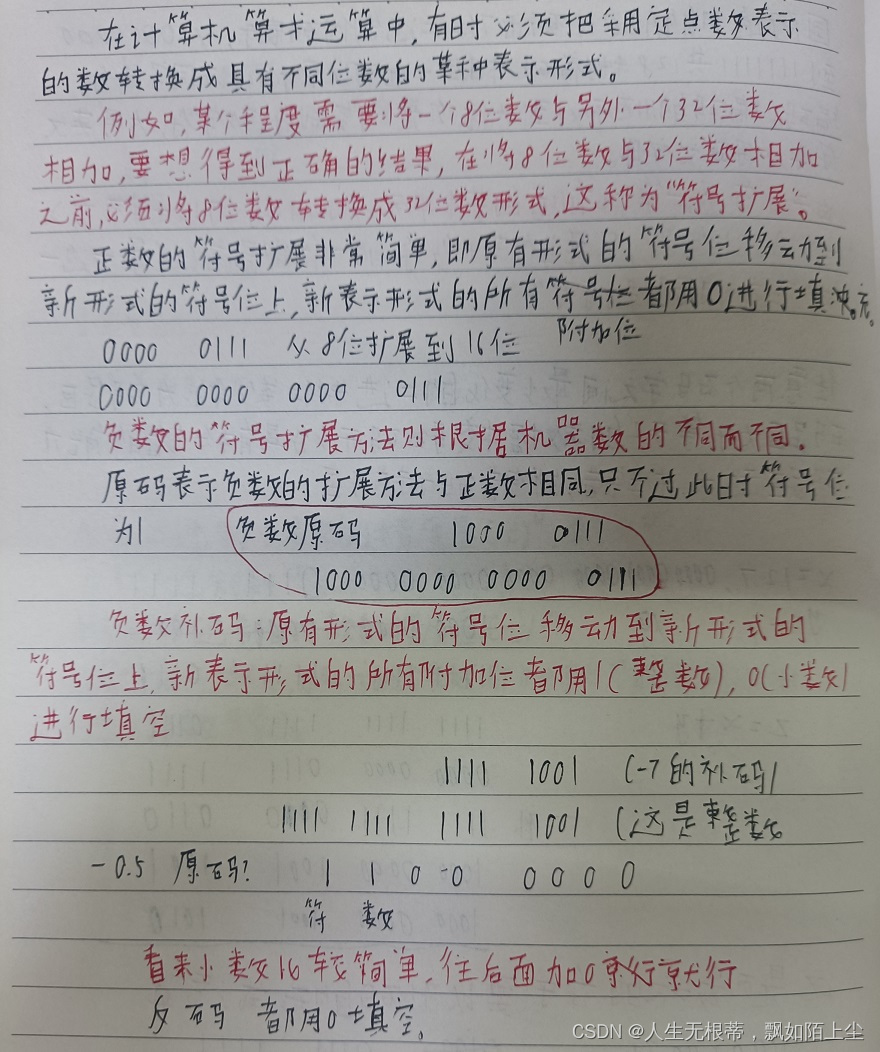 在计算机算术运算中,有时必须把采用定点数表示
的数转换成具有不同位数的某种表示形式。
例如,某个程度需要将一个8位数与另外一个32位数
相加,要想得到正确的结果,在将8位数与32位数相加
之前,必须将8位数转换成32位数形式,这称为"符号扩展"。
正数的符号扩展非常简单,即原有形式的符号位移动到
新形式的符号位上,新表示形式的所有符号位都用0进行填充。
附加位
0000 0111 从8位扩展到16位
0000 0000 0000 0111
负数的符号扩展方法则根据机器数的不同而不同.
原码表示负数的扩展方法与正数相同,只不过此时符号位
为1 负数原码 1000 0111
1000 0000 0000 0111
负数补码:原有形式的符号位移动到新形式的
符号位上,新表示形式的所有附加位都用1(整数),0(小数)
进行填空
1111 1001 (-7的补码)
1111 1111 1111 1001 (这是整数
-0.5 原码? 1 1 0 0 0 0 0 0
符 数
看来小数比较简单,往后面加0就行
反码 都用0填空。
CSDN @人生无根蒂,飘如陌上尘